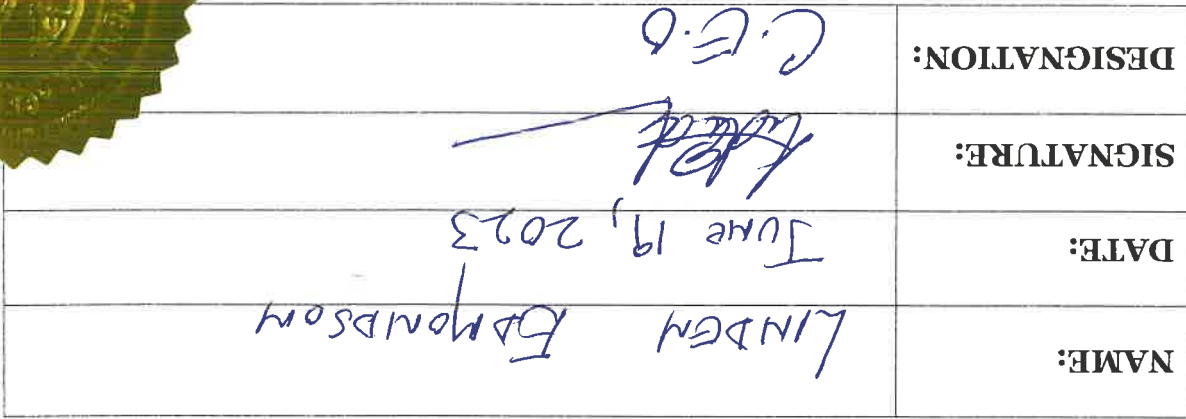 NAME: LINDEN EDMONDSON
DATE: JUNE 19, 2023
SIGNATURE:
DESIGNATION: C.E.O